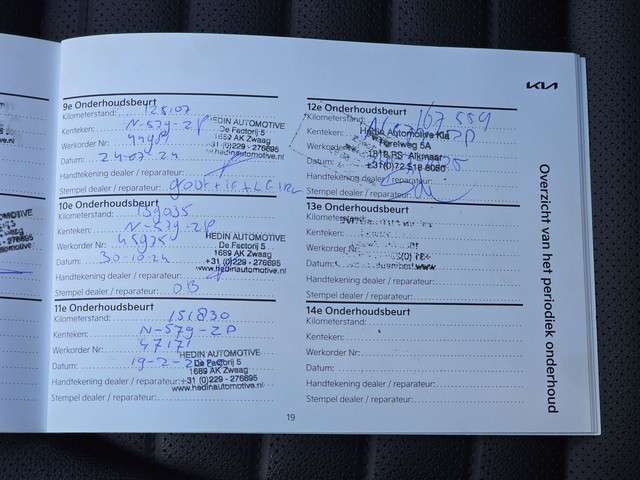 KIA
9e Onderhoudsbeurt
Kilometerstand: 125107
Kenteken: N-579-2P
Werkorder Nr:
Datum: 24 07 24
Handtekening dealer / reparateur:
Stempel dealer / reparateur:
HEDIN AUTOMOTIVE
De Factorij 5
1689 AK Zwaag
+31 (0)229 - 276695
www.hedinautomotive.nl
10e Onderhoudsbeurt
Kilometerstand: 139035
Kenteken: N-579-2P
Werkorder Nr: 45925
Datum: 30-10-24
Handtekening dealer / reparateur:
Stempel dealer / reparateur: OB
HEDIN AUTOMOTIVE
De Factorij 5
1689 AK Zwaag
+31 (0)229 - 276695
www.hedinautomotive.nl
11e Onderhoudsbeurt
Kilometerstand: 151830
Kenteken: N-579-2P
Werkorder Nr: 47171
Datum: 19-2-2
Handtekening dealer / reparateur:
Stempel dealer / reparateur:
HEDIN AUTOMOTIVE
De Factorij 5
1689 AK Zwaag
+31 (0)229 - 276695
www.hedinautomotive.nl
12e Onderhoudsbeurt
Kilometerstand: 167 559
Kenteken: 2P
Werkorder Nr:
Datum:
Handtekening dealer / reparateur:
Stempel dealer / reparateur:
Hedin Automotive Kia
5A
Alkmaar
13e Onderhoudsbeurt
Kilometerstand:
Kenteken:
Werkorder Nr:
Datum:
Handtekening dealer / reparateur:
Stempel dealer / reparateur:
14e Onderhoudsbeurt
Kilometerstand:
Kenteken:
Werkorder Nr:
Datum:
Handtekening dealer / reparateur:
Stempel dealer / reparateur:
Overzicht van het periodiek onderhoud
19